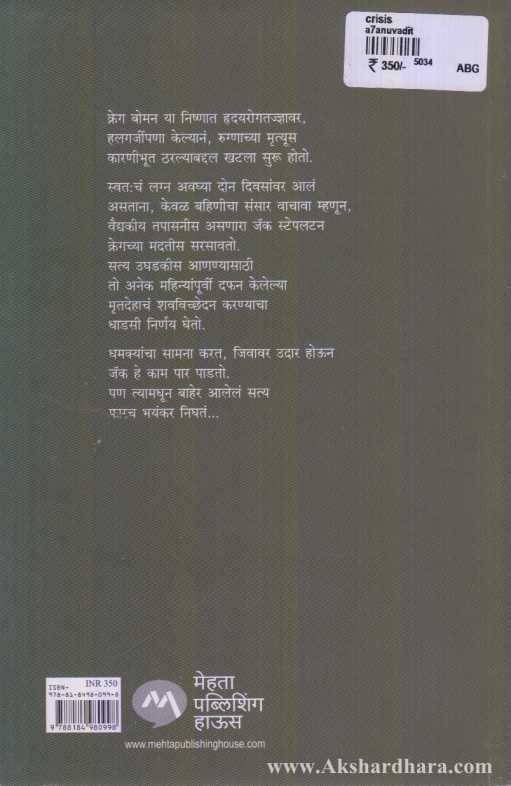 crisis
a7anuvadit
₹ 350/- 5034 ABG
क्रेग बोमन या निष्णात हृदयरोगतज्ज्ञावर,
हलगर्जीपणा केल्यानं, रुग्णाच्या मृत्यूस
कारणीभूत ठरल्याबद्दल खटला सुरू होतो.
स्वत:चं लग्न अवघ्या दोन दिवसांवर आलं
असताना, केवळ बहिणीचा संसार वाचावा म्हणून,
वैद्यकीय तपासनीस असणारा जॅक स्टेपलटन
क्रेगच्या मदतीस सरसावतो.
सत्य उघडकीस आणण्यासाठी
तो अनेक महिन्यांपूर्वी दफन केलेल्या
मृतदेहाचं शवविच्छेदन करण्याचा
धाडसी निर्णय घेतो.
धमक्यांचा सामना करत, जिवावर उदार होऊन
जॅक हे काम पार पाडतो.
पण त्यामधून बाहेर आलेलं सत्य
फारच भयंकर निघतं...
ISBN- INR 350
978-81-8498-099-8
9 788184 980998
मेहता
पब्लिशिंग
हाऊस
www.mehtapublishinghouse.com
www.Akshardhara.com